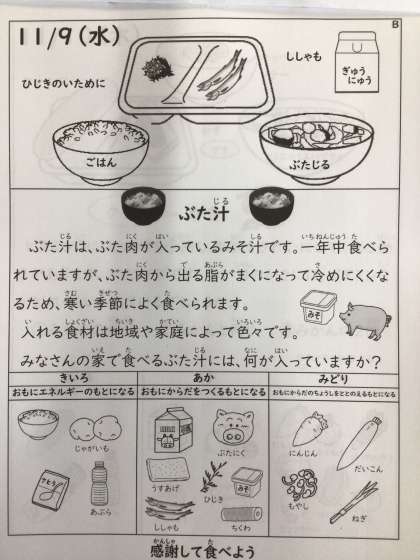 B
11/9(水)
ひじきのいために
ししゃも
ぎゅう
にゅう
ごはん
ぶたじる
ぶた汁
じる
ぶた汁は、ぶた肉が入っているみそ汁です。一年中食べら
じる にく はい しる いちねんじゅう た
れていますが、ぶた肉から出る脂がまくになって冷めにくくな
にく で あぶら さ
るため、寒い季節によく食べられます。
さむ きせつ た
入れる食材は地域や家庭によって色々です。
い しょくざい ちいき かてい いろいろ
みなさんの家で食べるぶた汁には、何が入っていますか?
いえ た じる なに はい
みそ
きいろ あか みどり
おもにエネルギーのもとになる おもにからだをつくるもとになる おもにからだのちょうしをととのえるもとになる
じゃがいも
さとう
あぶら
ぶたにく
うすあげ
ひじき
みそ
ししゃも
ちくわ
にんじん
だいこん
もやし
ねぎ
感謝して食べよう
かんしゃ た